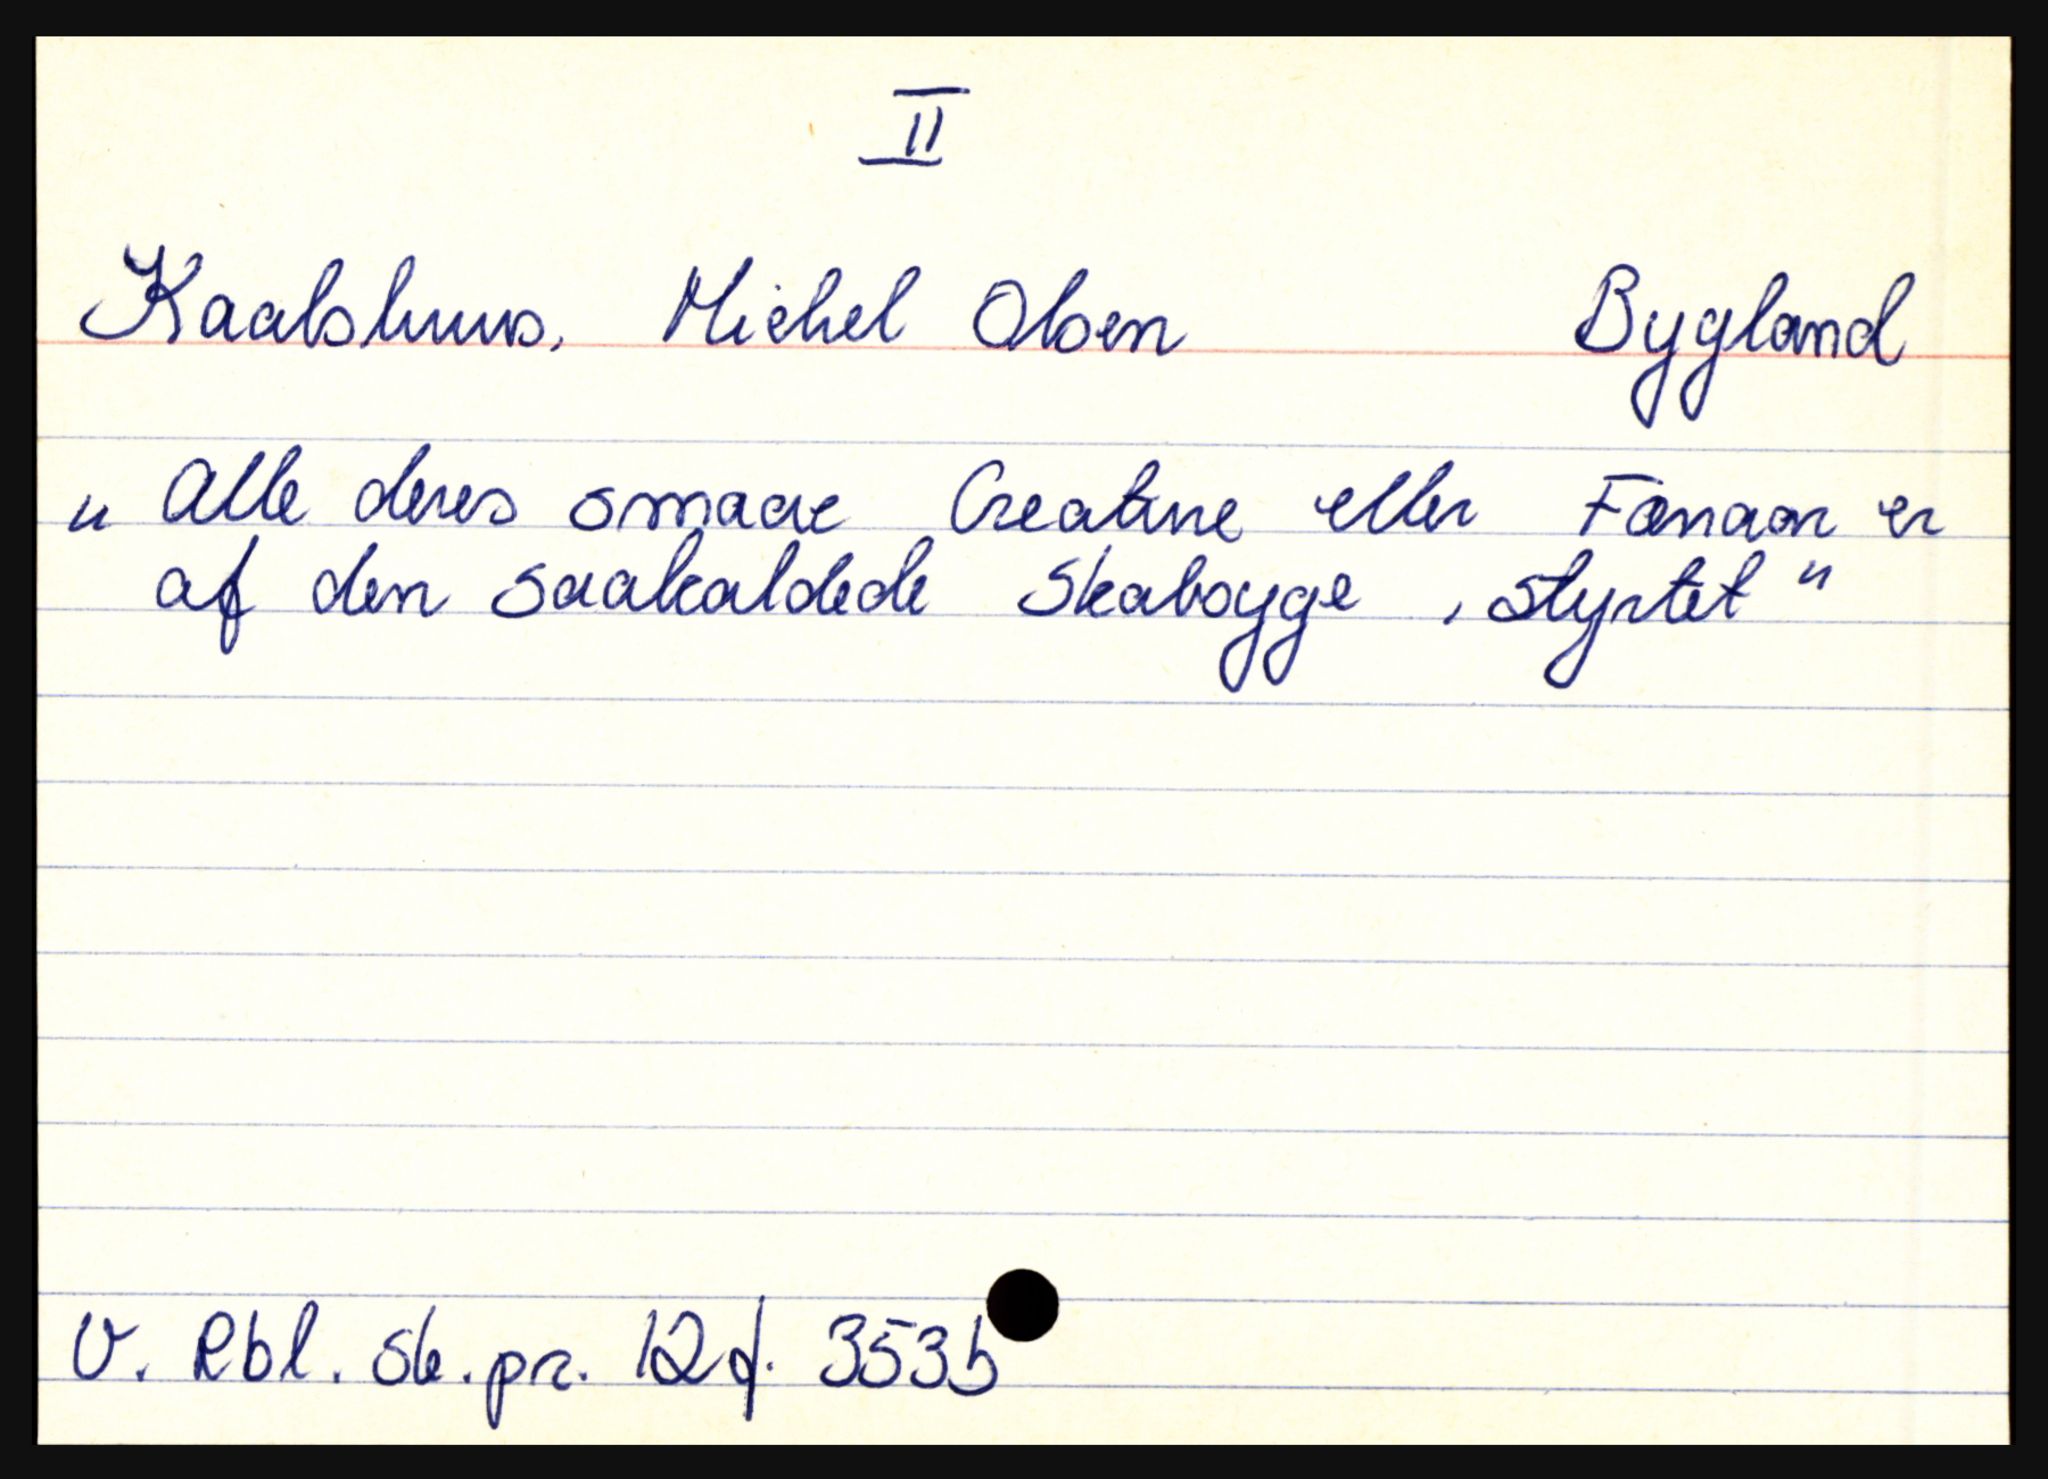 II
Kaalshuus, Michel Olsen Bygland
" Alle deres smaae Creature eller Fænaar er
af den saakaldede Skaboygge, styrtet "
V. Rbl. sk.pr. 12 f. 353b